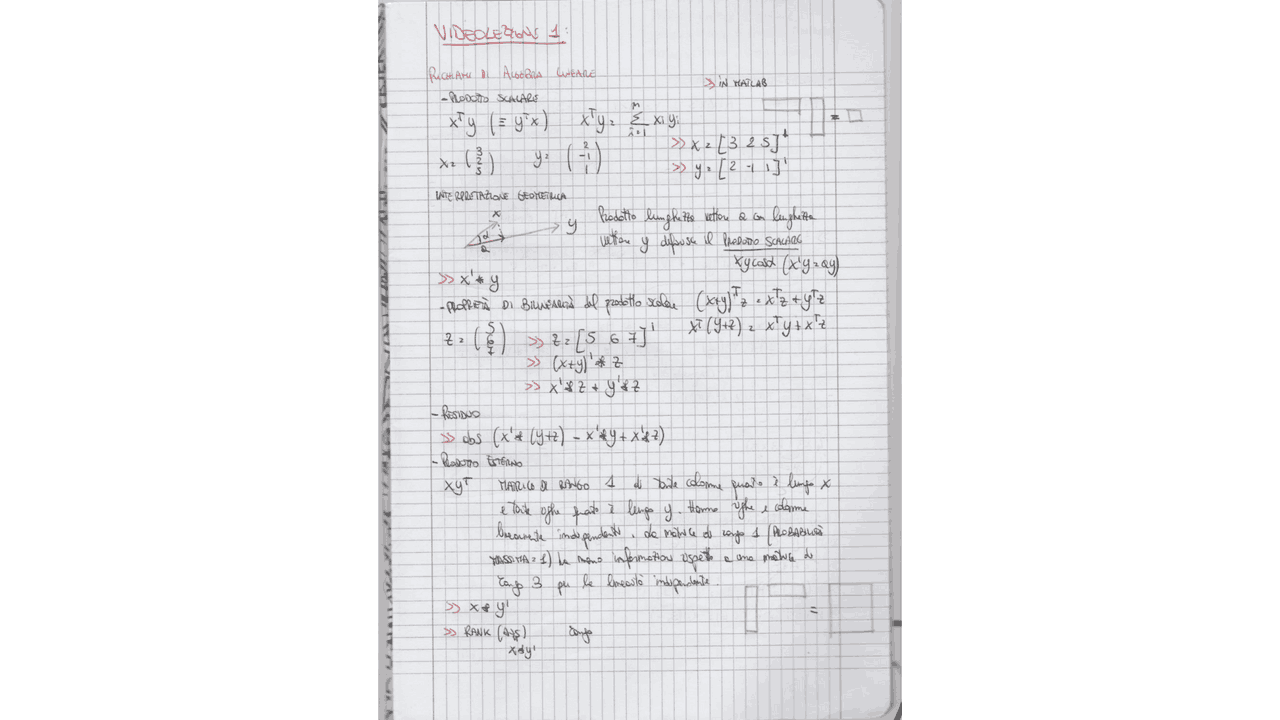 VIDEOLEZIONE 1:
RICHIAMI DI ALGEBRA LINEARE
>> IN MATLAB
- PRODOTTO SCALARE
xᵀy (≡ yᵀx) xᵀy = Σ xᵢyᵢ
i=1
=
x = (3 2 5) y = (2 -1 1)
>> x = [3 2 5]'
>> y = [2 -1 1]'
INTERPRETAZIONE GEOMETRICA
x
y
α
a
Prodotto lunghezza vettore a con lunghezza
vettore y definisce il PRODOTTO SCALARE
xycosα (x'y = ay)
>> x' * y
- PROPRIETÀ DI BILINEARITÀ del prodotto scalare (x+y)ᵀz = xᵀz + yᵀz
xᵀ(y+z) = xᵀy + xᵀz
z = (5 6 7) >> z = [5 6 7]'
>> (x+y)' * z
>> x' * z + y' * z
- RESIDUO
>> abs (x' * (y+z) - x' * y + x' * z)
- PRODOTTO ESTERNO
xyᵀ MATRICE DI RANGO 1 di tante colonne quanto è lungo x
e tante righe quanto è lungo y. Hanno righe e colonne
linearmente indipendenti. matrice di rango 1 (PROBABILITÀ
MASSIMA = 1) ha meno informazioni rispetto a una matrice di
rango 3 per la linearità indipendente.
>> x * y'
=
>> RANK (ans) rango
x*y'